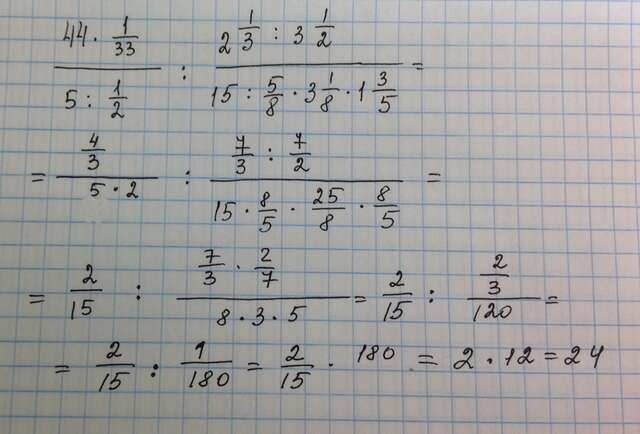 44 · 1/33 / 5 : 1/2 : 2 1/3 : 3 1/2 / 15 : 5/8 · 3 1/8 · 1 3/5 =
= 4/3 / 5 · 2 : 7/3 : 7/2 / 15 · 8/5 · 25/8 · 8/5 =
= 2/15 : 7/3 · 2/7 / 8 · 3 · 5 = 2/15 : 2/3 / 120 =
= 2/15 : 1/180 = 2/15 · 180 = 2 · 12 = 24